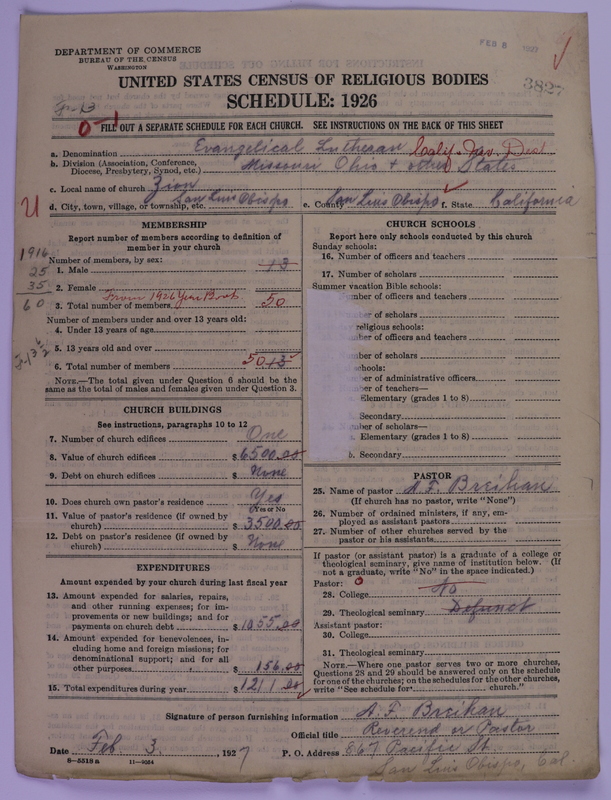 DEPARTMENT OF COMMERCE
BUREAU OF THE CENSUS
WASHINGTON
FEB 8 1927
3827
UNITED STATES CENSUS OF RELIGIOUS BODIES
SCHEDULE: 1926
FILL OUT A SEPARATE SCHEDULE FOR EACH CHURCH. SEE INSTRUCTIONS ON THE BACK OF THIS SHEET
a. Denomination Evangelical Lutheran Calif. Nev. Dist
b. Division (Association, Conference, Diocese, Presbytery, Synod, etc.) Missouri Ohio + other States
c. Local name of church Zion
d. City, town, village, or township, etc. San Luis Obispo e. County San Luis Obispo f. State California
MEMBERSHIP
Report number of members according to definition of
member in your church
1916
25
35
60
Number of members, by sex:
1. Male 13
2. Female
From 1926 Year Book
3. Total number of members 50
Number of members under and over 13 years old:
4. Under 13 years of age
5. 13 years old and over
6. Total number of members 50 13
NOTE.—The total given under Question 6 should be the
same as the total of males and females given under Question 3.
CHURCH BUILDINGS
See instructions, paragraphs 10 to 12
7. Number of church edifices One
8. Value of church edifices $6500.00
9. Debt on church edifices $ None
10. Does church own pastor's residence Yes
(Yes or No)
11. Value of pastor's residence (if owned by
church) $3500.00
12. Debt on pastor's residence (if owned by
church) $ None
EXPENDITURES
Amount expended by your church during last fiscal year
13. Amount expended for salaries, repairs,
and other running expenses; for im-
provements or new buildings; and for
payments on church debt $1055.00
14. Amount expended for benevolences, in-
cluding home and foreign missions; for
denominational support; and for all
other purposes $156.00
15. Total expenditures during year $1211.00
CHURCH SCHOOLS
Report here only schools conducted by this church
Sunday schools:
16. Number of officers and teachers
17. Number of scholars
Summer vacation Bible schools:
ber of officers and teachers
ber of scholars
religious schools:
ber of officers and teachers
ber of scholars
chools:
ber of administrative officers
ber of teachers—
Elementary (grades 1 to 8)
Secondary
ber of scholars—
a. Elementary (grades 1 to 8)
b. Secondary
PASTOR
25. Name of pastor A. F. Breihan
(If church has no pastor, write "None")
26. Number of ordained ministers, if any, em-
ployed as assistant pastors
27. Number of other churches served by the
pastor or his assistants
If pastor (or assistant pastor) is a graduate of a college or
theological seminary, give name of institution below. (If
not a graduate, write "No" in the space indicated.)
Pastor:
28. College No
29. Theological seminary Defunct
Assistant pastor:
30. College
31. Theological seminary
NOTE.—Where one pastor serves two or more churches,
Questions 28 and 29 should be answered only on the schedule
for one of the churches; on the schedules for the other churches,
write "See schedule for church."
Signature of person furnishing information A. F. Breihan
Official title Reverend or Pastor
Date Feb 3, 1927 P. O. Address 867 Pacific St.
San Luis Obispo, Cal.
8—5518a 11—9034